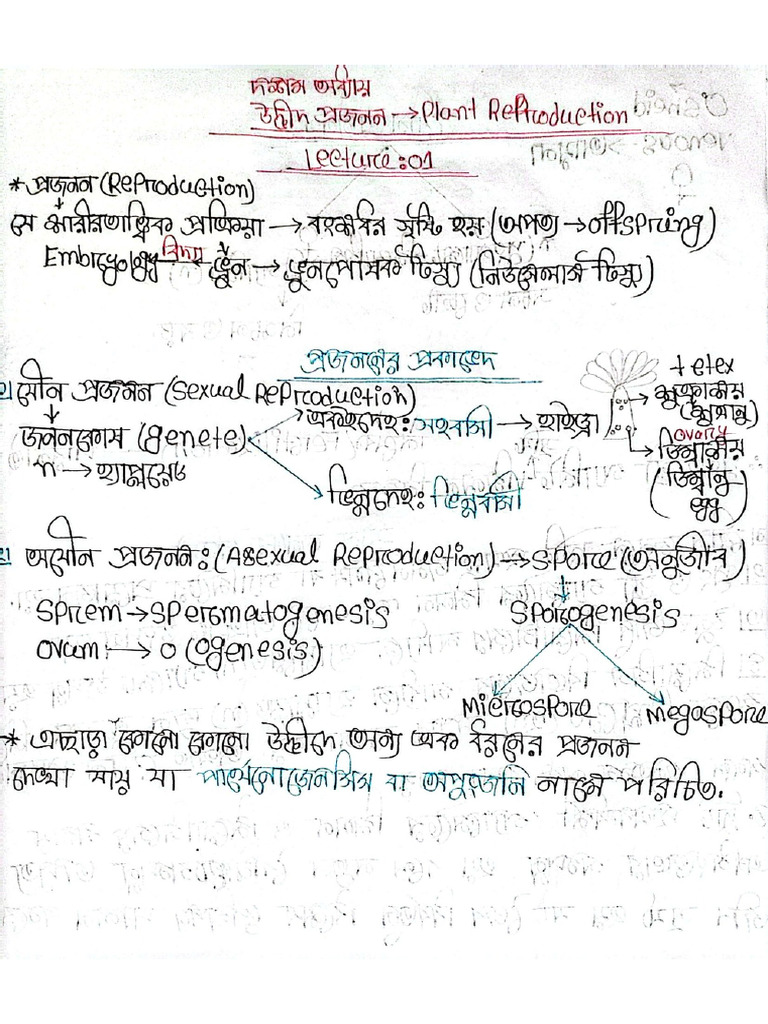 দশম অধ্যায়
উদ্ভিদ প্রজনন → Plant Reproduction
Lecture:01
* প্রজনন (Reproduction)
যে শারীরতাত্ত্বিক প্রক্রিয়া → বংশধর সৃষ্টি হয় (অপত্য → offspring)
Embryology ← বিদ্যা ভ্রূন → ভ্রূনপোষক টিস্যু (নিউসেলার্স টিস্যু)
প্রজননের প্রকারভেদ
১) যৌন প্রজনন (Sexual Reproduction)
জননকোষ (genete)
n → হ্যাপ্লয়েড
একইদেহে: সহবাসী → হাইড্রা
ভিন্নদেহে: ভিন্নবাসী
tetex
শুক্রাশয়
(শুক্রানু)
ovary
ডিম্বাশয়
(ডিম্বানু
২) অযৌন প্রজনন: (Asexual Reproduction) → Spore (অনুজীব)
Sprem → Spermatogenesis
Ovam: → O (ogenesis)
Sporogenesis
Microspore
Megaspore
* এছাড়া কোনো কোনো উদ্ভিদে অন্য এক ধরনের প্রজনন
দেখা যায় যা পার্থেনোজেনেসিস বা অপুংজনি নামে পরিচিত.